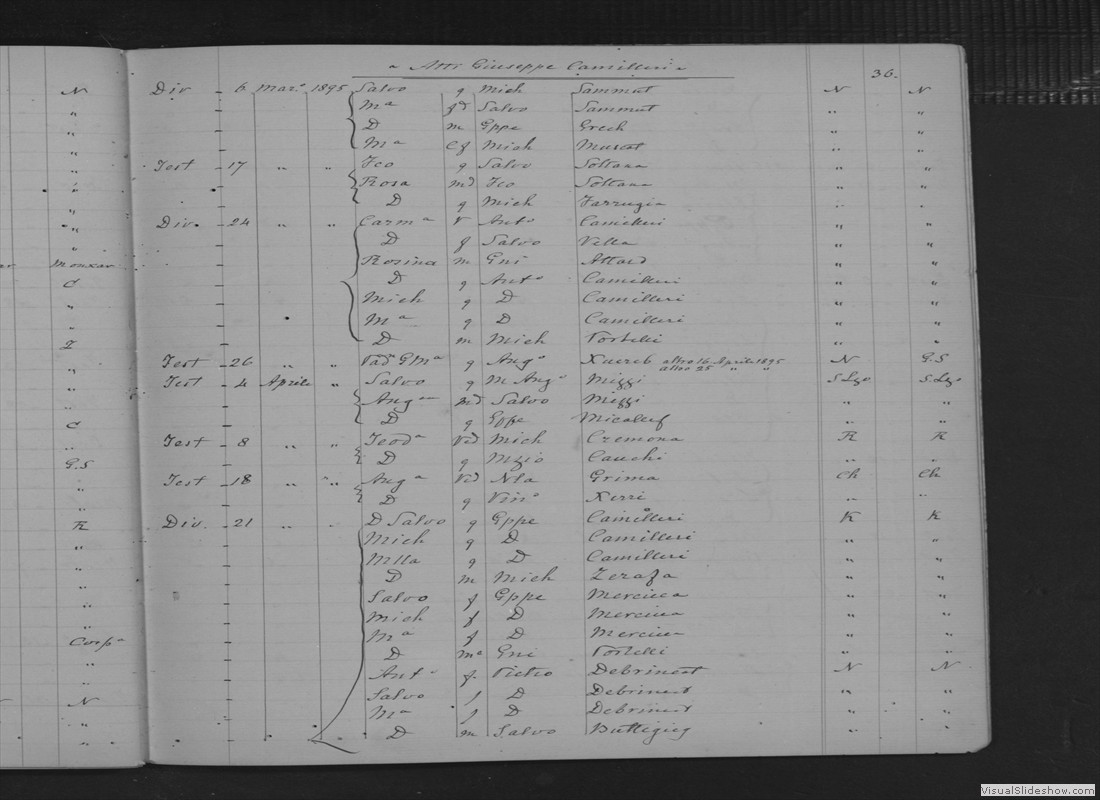 Attr Giuseppe Camilleri
36.
N Div 6 Marzo 1895 Salvo q Mich Sammut N N
" Mª fd Salvo Sammut " "
" D m Gppe Grech " "
" Mª Cf Mich Muscat " "
" Test 17 " " Fco q Salvo Soltana " "
" Rosa md Fco Soltana " "
" D q Mich Farrugia " "
" Div. 24 " " Carmª V Antº Camilleri " "
" D f Salvo Vella " "
Monxar Rosina m Gni Attard " "
C D q Antº Camilleri " "
" Mich q D Camilleri " "
" Mª q D Camilleri " "
D m Mich Portelli " "
" Test 26 " " GMª q Angº Xuereb altro 16 Aprile 1895 N G.S
altro 25 " "
" Test 4 Aprile " Salvo q M Angº Mizzi S Lzo S Lzo
Angª md Salvo Mizzi " "
C D q Gppe Micallef " "
" Test 8 " " Teodª Vd Mich Cremona R R
G.S D q Nzio Cauchi " "
" Test 18 " " Angª Vd Nla Grima Ch Ch
" D q Vinº Xerri " "
R Div. 21 " " D Salvo q Gppe Camilleri K K
" Mich q D Camilleri " "
" Mlla q D Camilleri " "
" D m Mich Zerafa " "
" Salvo f Gppe Mercieca " "
" Mich f D Mercieca " "
Corpª Mª f D Mercieca " "
" D mª Gni Portelli " "
" Antº f. Pietro Debrincat N N
N Salvo f D Debrincat " "
" Mª f D Debrincat " "
" D m Salvo Buttigieg " "
VisualSlideshow.com